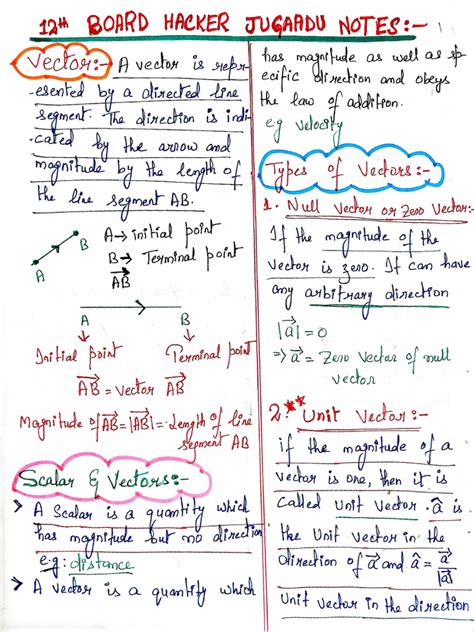 12th BOARD HACKER JUGAADU NOTES:-
Vector:- A vector is repr
-esented by a directed line
segment. The direction is indi
-cated by the arrow and
magnitude by the length of
the line segment AB.
A B
A→ initial point
B→ Terminal point
AB
A B
Initial point Terminal point
AB = vector AB
Magnitude of AB = |AB| = Length of line
segment AB
Scalar & Vectors:-
> A Scalar is a quantity which
has magnitude but no direction
e.g: distance
> A vector is a quantity which
has magnitude as well as sp
ecific direction and obeys
the law of addition.
e.g velocity
Types of Vectors:-
1. Null Vector or Zero Vector:-
If the magnitude of the
vector is zero. It can have
any arbitrary direction
|a| = 0
⇒ a = Zero Vector of null
vector
2.** Unit Vector:-
if the magnitude of a
vector is one, then it is
Called Unit Vector. â is
the Unit Vector in the
direction of a and â = a/|a|
Unit Vector in the direction